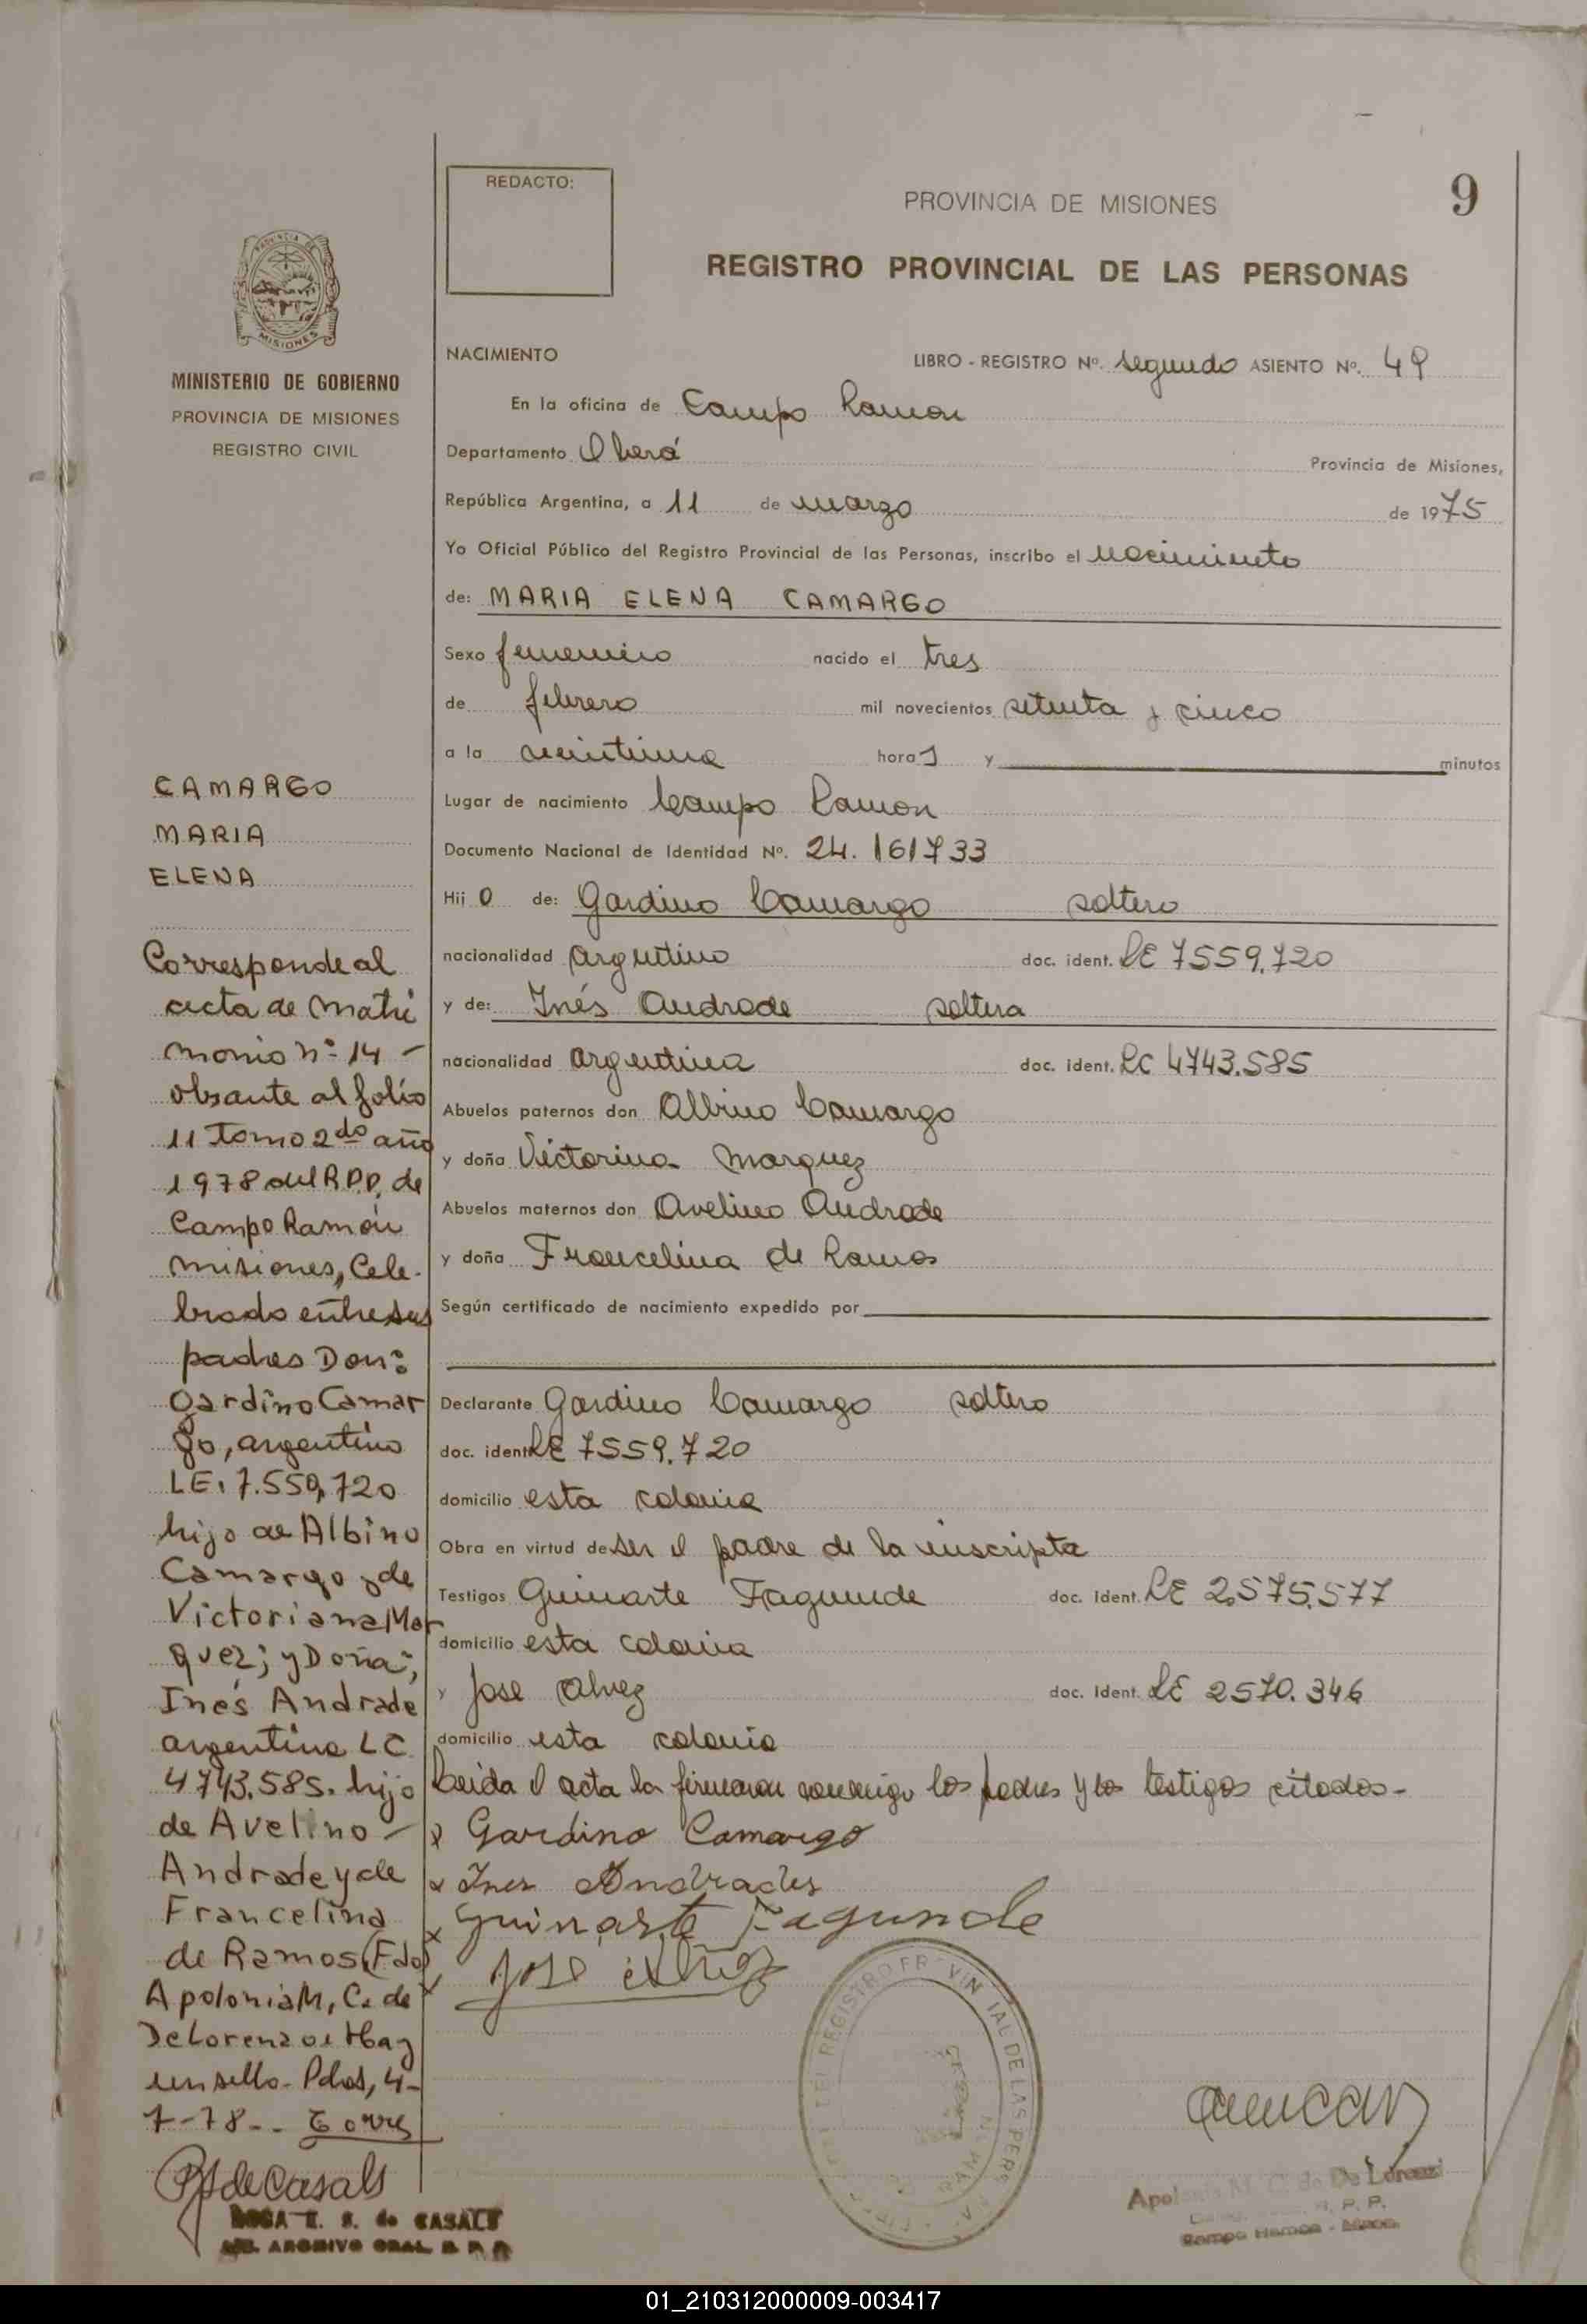 REDACTO:
PROVINCIA DE MISIONES
9
REGISTRO PROVINCIAL DE LAS PERSONAS
MISIONES
MINISTERIO DE GOBIERNO
PROVINCIA DE MISIONES
REGISTRO CIVIL
NACIMIENTO LIBRO - REGISTRO Nº. segundo ASIENTO Nº. 49
En la oficina de Campo Ramon
Departamento Oberá Provincia de Misiones,
República Argentina, a 11 de marzo de 1975
Yo Oficial Público del Registro Provincial de las Personas, inscribo el nacimiento
de: MARIA ELENA CAMARGO
Sexo femenino nacido el tres
de febrero mil novecientos setenta y cinco
a la veintiuna hora s y minutos
Lugar de nacimiento Campo Ramon
Documento Nacional de Identidad Nº. 24.161733
Hij o de: Gardino Camargo soltero
nacionalidad argentino doc. ident. LE 7559.720
y de: Inés Andrade soltera
nacionalidad argentina doc. ident. LC 4743.585
Abuelos paternos don Albino Camargo
y doña Victorina Marquez
Abuelos maternos don Avelino Andrade
y doña Francelina de Ramos
Según certificado de nacimiento expedido por
Declarante Gardino Camargo soltero
doc. ident LE 7559.720
domicilio esta colonia
Obra en virtud de ser el padre de la inscripta
Testigos Guinarte Fagunde doc. Ident. LE 2.575.577
domicilio esta colonia
y Jose Alvez doc. Ident. LE 2570.346
domicilio esta colonia
Leida el acta la firmaron conmigo los padres y los testigos citados-
x Gardino Camargo
x Ines Andrades
x Guinarte Fagunde
x Jose Alvez
CAMARGO
MARIA
ELENA
Corresponde al
acta de Matri
monio nº 14 -
obrante al folio
11 Tomo 2do año
1978 del R.P.P. de
Campo Ramón
misiones, Cele-
brado entre sus
padres Don:
Gardino Camar
go, argentino
LE. 7.559,720
hijo de Albino
Camargo y de
Victoriana Mar
quez; y Doña;
Inés Andrade
argentina LC
4743.585. hijo
de Avelino -
Andrade y de
Francelina
de Ramos (Fdo)
Apolonia M, C. de
De Lorenzo. Hay
un sello- Pdas, 4-
7-78--
de Casals
ROSA E. S. de CASALS
ARCHIVO GRAL. R. P. P.
REGISTRO PROVINCIAL DE LAS PERS
Apolonia M. C. de De Lorenzi
R. P. P.
Campo Ramon - Mnes.
01_210312000009-003417